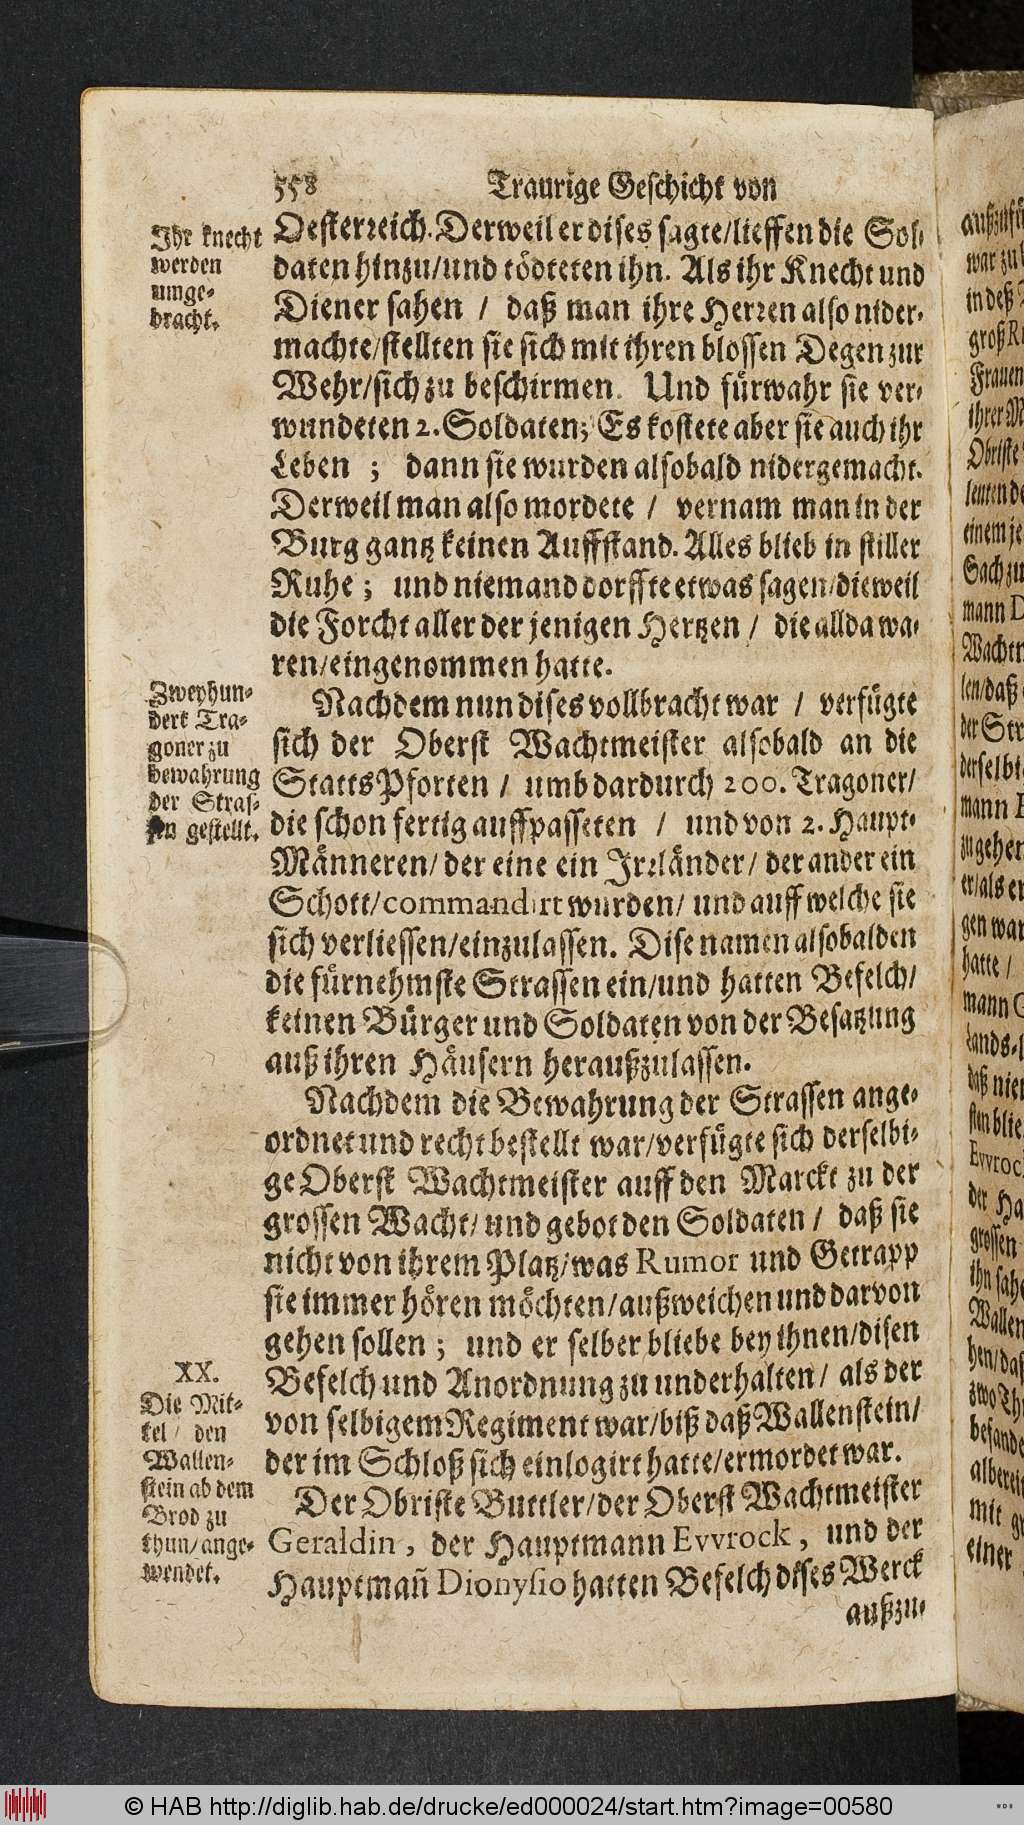 558 Traurige Geschicht von
Ihr knecht
werden
umge-
bracht.
Oesterreich. Derweil er dises sagte/lieffen die Sol-
daten hinzu/und tödteten ihn. Als ihr Knecht und
Diener sahen / daß man ihre Herren also nider-
machte/stellten sie sich mit ihren blossen Degen zur
Wehr/sich zu beschirmen. Und fürwahr sie ver-
wundeten 2. Soldaten; Es kostete aber sie auch ihr
Leben ; dann sie wurden alsobald nidergemacht.
Derweil man also mordete / vernam man in der
Burg gantz keinen Auffstand. Alles blieb in stiller
Ruhe ; und niemand dorffte etwas sagen/dieweil
die Forcht aller der jenigen Hertzen / die allda wa-
ren/eingenommen hatte.
Zweyhun-
dert Tra-
goner zu
bewahrung
der Stras-
sen gestellt.
Nachdem nun dises vollbracht war / verfügte
sich der Oberst Wachtmeister alsobald an die
StattsPforten / umb dardurch 200. Tragoner/
die schon fertig auffpasseten / und von 2. Haupt-
Männeren/ der eine ein Irrländer/ der ander ein
Schott/commandirt wurden/ und auff welche sie
sich verliessen/einzulassen. Dise namen alsobalden
die fürnehmste Strassen ein/und hatten Befelch/
keinen Bürger und Soldaten von der Besatzung
auß ihren Häusern heraußzulassen.
Nachdem die Bewahrung der Strassen ange-
ordnet und recht bestellt war/verfügte sich derselbi-
ge Oberst Wachtmeister auff den Marckt zu der
grossen Wacht/ und gebot den Soldaten / daß sie
nicht von ihrem Platz/was Rumor und Getrapp
sie immer hören möchten/außweichen und darvon
gehen sollen ; und er selber bliebe bey ihnen/disen
Befelch und Anordnung zu underhalten/ als der
von selbigem Regiment war/biß daß Wallenstein/
der im Schloß sich einlogirt hatte/ermordet war.
XX.
Die Mit-
tel/ den
Wallen-
stein ab dem
Brod zu
thun/ange-
wendet.
Der Obriste Buttler/der Oberst Wachtmeister
Geraldin, der Hauptmann Evvrock, und der
Hauptmañ Dionysio hatten Befelch dises Werck
außzu-
© HAB http://diglib.hab.de/drucke/ed000024/start.htm?image=00580